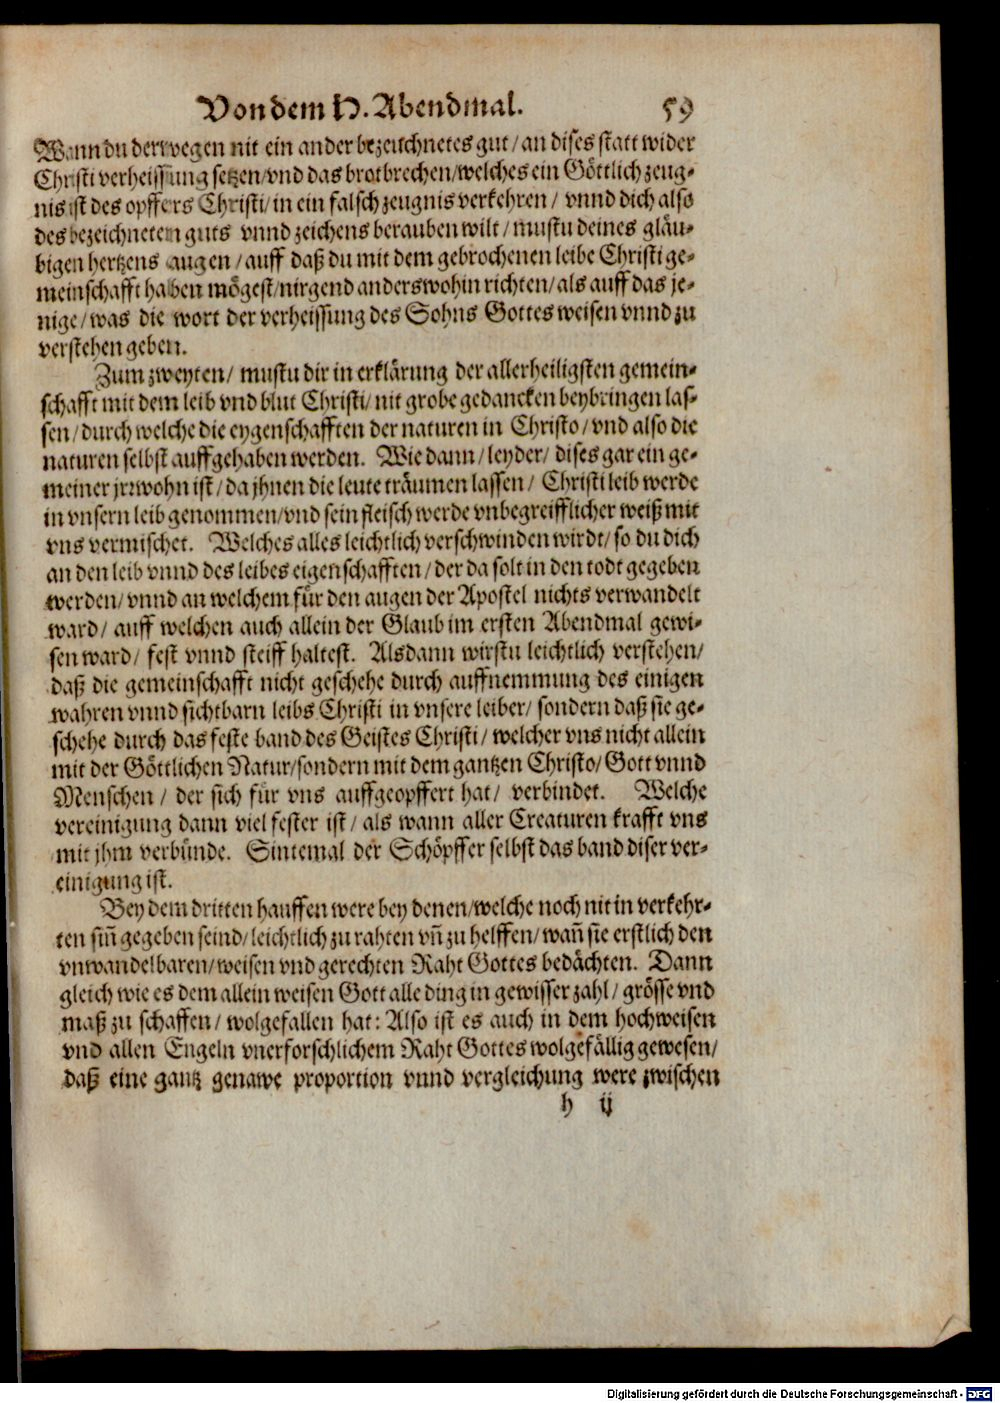 Von dem H. Abendmal. 59
Wann du derwegen nit ein ander bezeichnetes gut / an dises statt wider
Christi verheissung setzen / vnd das brotbrechen / welches ein Göttlich zeug-
nis ist des opffers Christi / in ein falsch zeugnis verkehren / vnnd dich also
des bezeichneten guts vnnd zeichens berauben wilt / mustu deines gläu-
bigen hertzens augen / auff daß du mit dem gebrochenen leibe Christi ge-
meinschafft haben mögest / nirgend anderswohin richten / als auff das je-
nige / was die wort der verheissung des Sohns Gottes weisen vnnd zu
verstehen geben.
Zum zweyten / mustu dir in erklärung der allerheiligsten gemein-
schafft mit dem leib vnd blut Christi / nit grobe gedancken beybringen las-
sen / durch welche die eygenschafften der naturen in Christo / vnd also die
naturen selbst auffgehaben werden. Wie dann / leyder / dises gar ein ge-
meiner jrrwohn ist / da jhnen die leute träumen lassen / Christi leib werde
in vnsern leib genommen / vnd sein fleisch werde vnbegreifflicher weiß mit
vns vermischet. Welches alles leichtlich verschwinden wirdt / so du dich
an den leib vnnd des leibes eigenschafften / der da solt in den todt gegeben
werden / vnnd an welchem für den augen der Apostel nichts verwandelt
ward / auff welchen auch allein der Glaub im ersten Abendmal gewi-
sen ward / fest vnnd steiff haltest. Alsdann wirstu leichtlich verstehen /
daß die gemeinschafft nicht geschehe durch auffnemmung des einigen
wahren vnnd sichtbarn leibs Christi in vnsere leiber / sondern daß sie ge-
schehe durch das feste band des Geistes Christi / welcher vns nicht allein
mit der Göttlichen Natur / sondern mit dem gantzen Christo / Gott vnnd
Menschen / der sich für vns auffgeopffert hat / verbindet. Welche
vereinigung dann viel fester ist / als wann aller Creaturen krafft vns
mit jhm verbünde. Sintemal der Schöpffer selbst das band diser ver-
einigung ist.
Bey dem dritten hauffen were bey denen / welche noch nit in verkehr-
ten siñ gegeben seind / leichtlich zu rahten vñ zu helffen / wañ sie erstlich den
vnwandelbaren / weisen vnd gerechten Raht Gottes bedächten. Dann
gleich wie es dem allein weisen Gott alle ding in gewisser zahl / grösse vnd
maß zu schaffen / wolgefallen hat : Also ist es auch in dem hochweisen
vnd allen Engeln vnerforschlichem Raht Gottes wolgefällig gewesen /
daß eine gantz genawe proportion vnnd vergleichung were zwischen
h ij
Digitalisierung gefördert durch die Deutsche Forschungsgemeinschaft - DFG